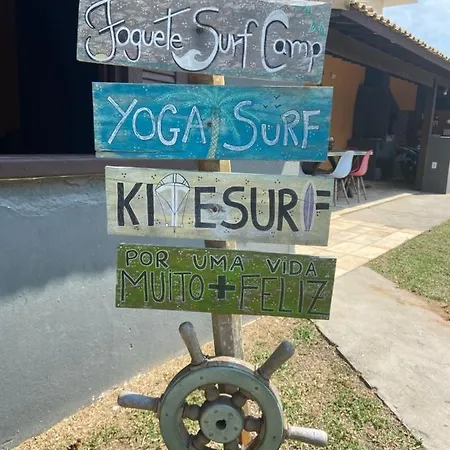 Foguete Surf Camp
YOGA SURF
KITESURF
POR UMA VIDA
MUITO + FELIZ